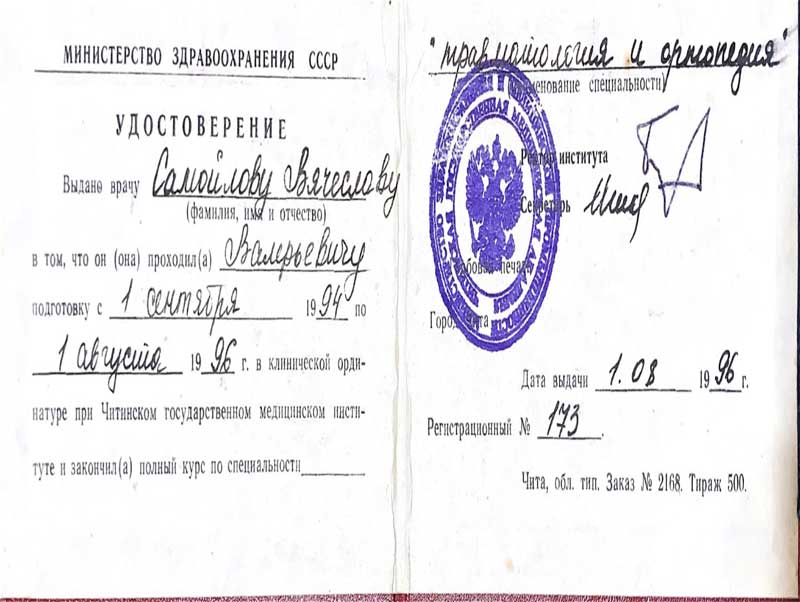 МИНИСТЕРСТВО ЗДРАВООХРАНЕНИЯ СССР
УДОСТОВЕРЕНИЕ
Выдано врачу Самойлову Вячеславу
(фамилия, имя и отчество)
в том, что он (она) проходил(а) Валерьевичу
подготовку с 1 сентября 1994 по
1 августа 1996 г. в клинической орди-
натуре при Читинском государственном медицинском инсти-
туте и закончил(а) полный курс по специальности
"травматология и ортопедия"
(наименование специальности)
Ректор института
Секретарь
Гербовая печать
Город Чита
Дата выдачи 1.08 1996 г.
Регистрационный № 173.
Чита, обл. тип. Заказ № 2168. Тираж 500.